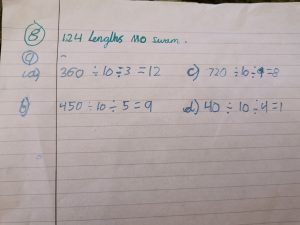 8 124 Lengths Mo swam.
9
a) 360 ÷ 10 ÷ 3 = 12 c) 720 ÷ 10 ÷ 9 = 8
b) 450 ÷ 10 ÷ 5 = 9 d) 40 ÷ 10 ÷ 4 = 1